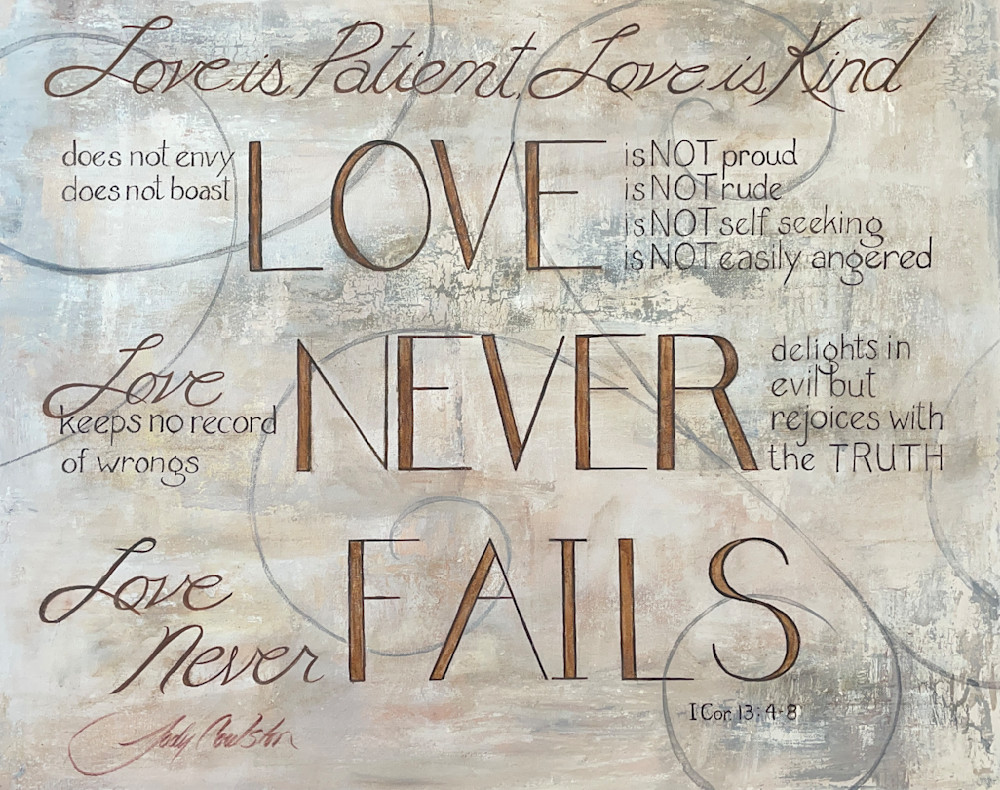 Love is Patient, Love is Kind
does not envy
does not boast
LOVE
is NOT proud
is NOT rude
is NOT self seeking
is NOT easily angered
Love
keeps no record
of wrongs
NEVER
delights in
evil but
rejoices with
the TRUTH
Love
Never
FAILS
I Cor. 13: 4-8
Jody